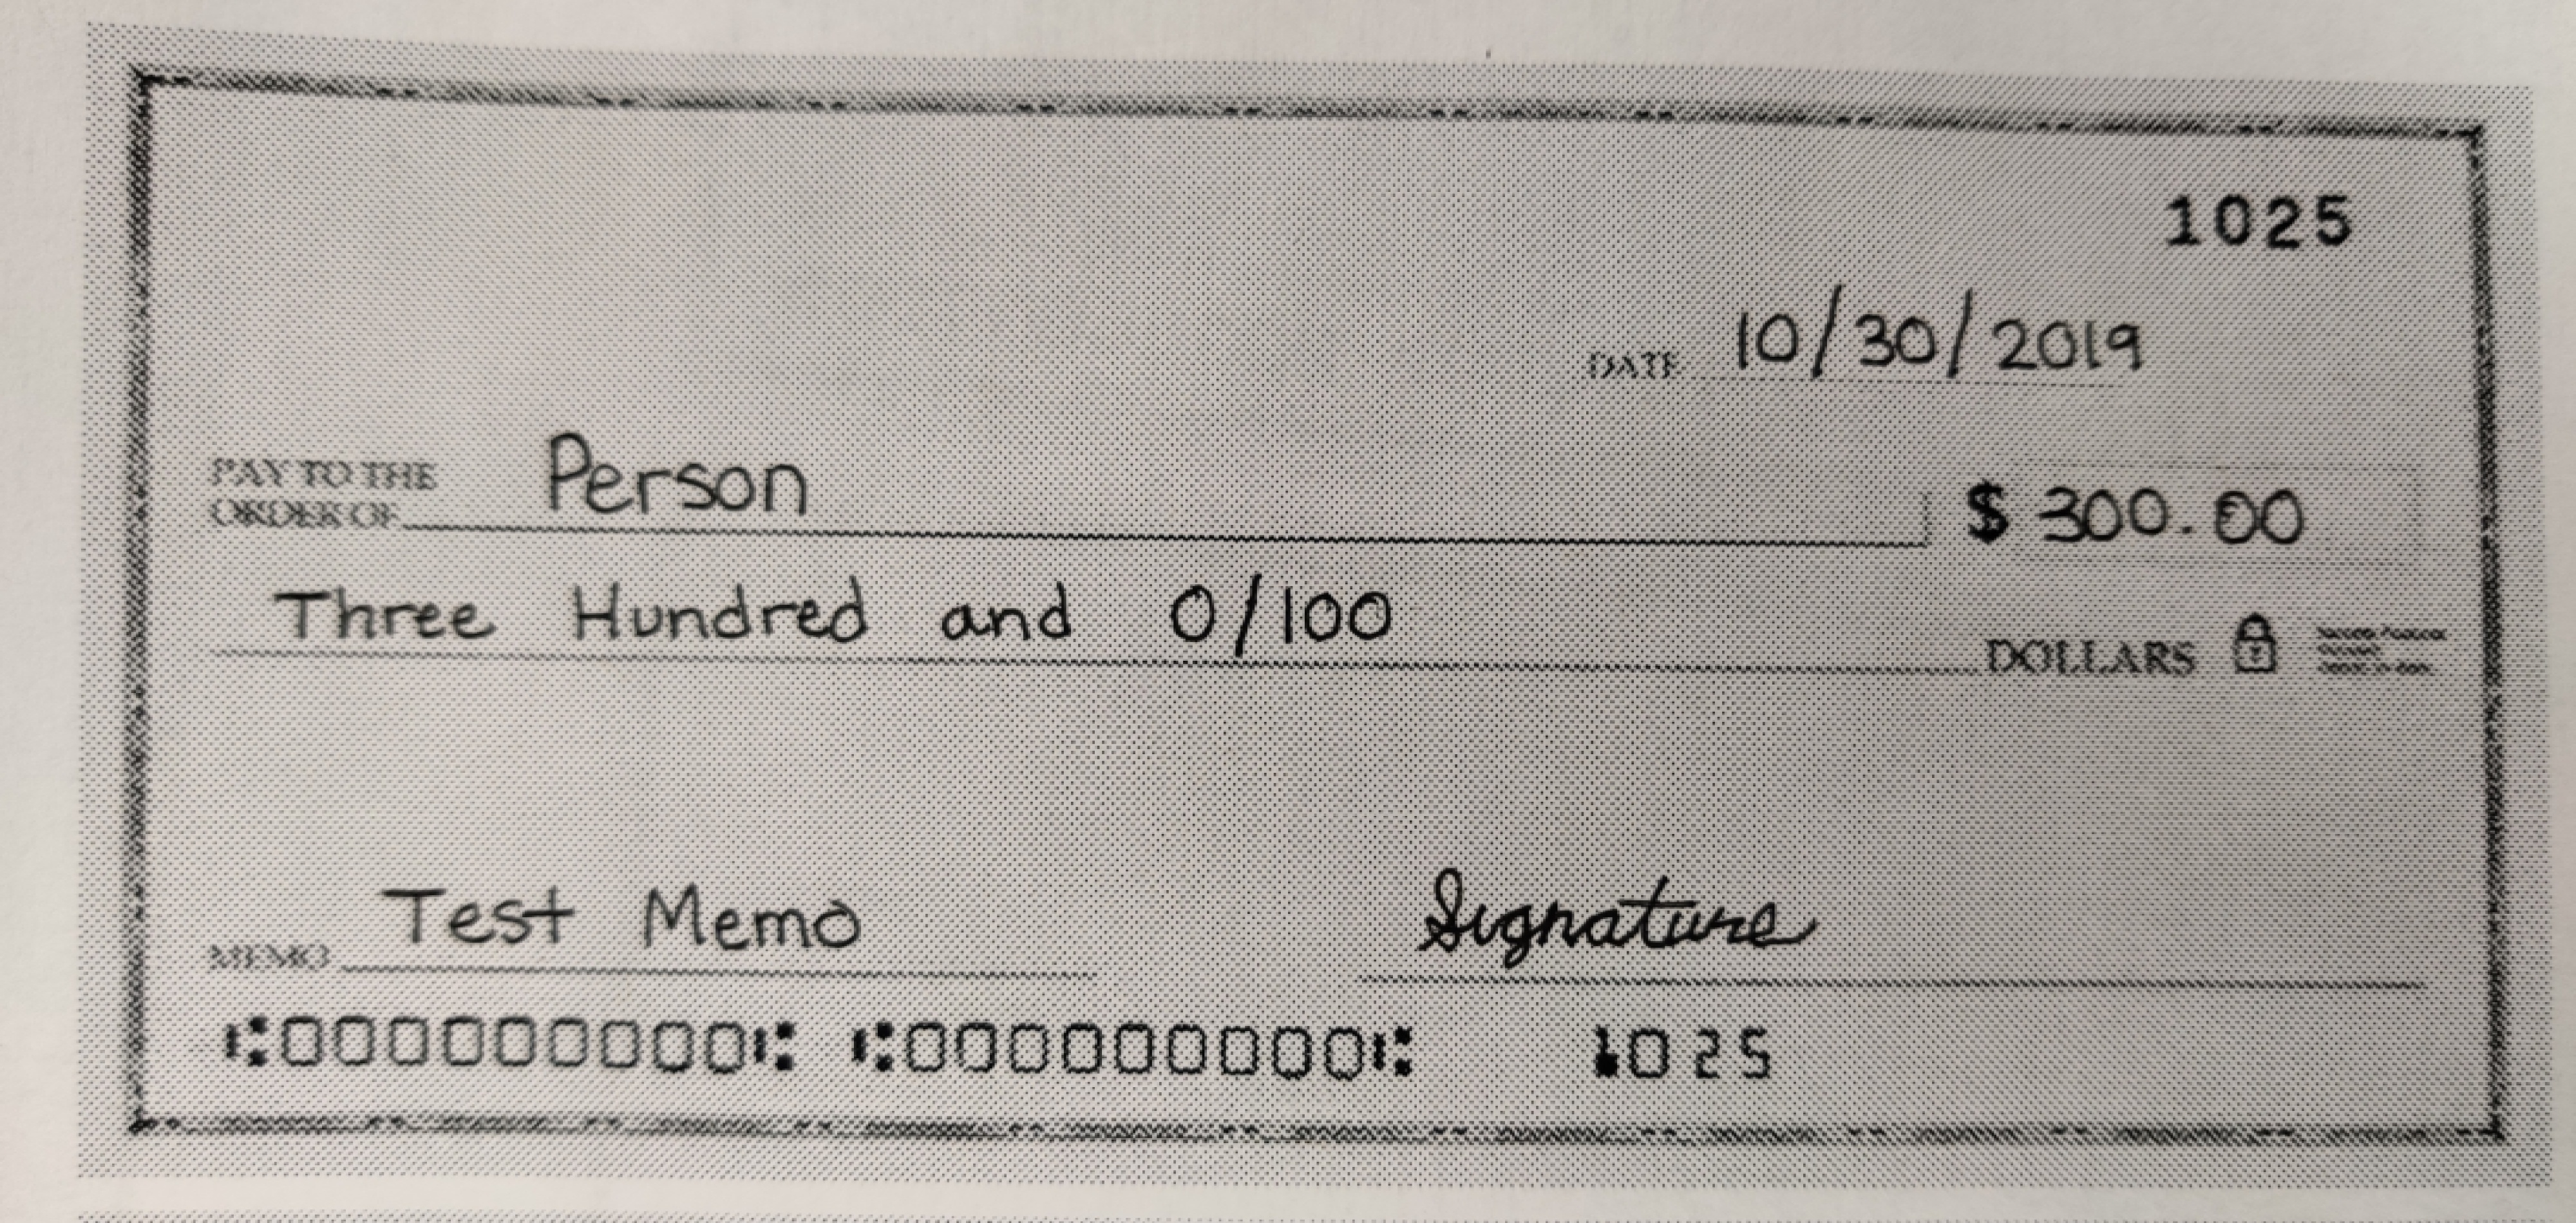 1025
DATE 10/30/2019
PAY TO THE
ORDER OF Person $ 300.00
Three Hundred and 0/100 DOLLARS
MEMO Test Memo Signature
⑆000000000⑆ ⑆000000000⑆ 1025